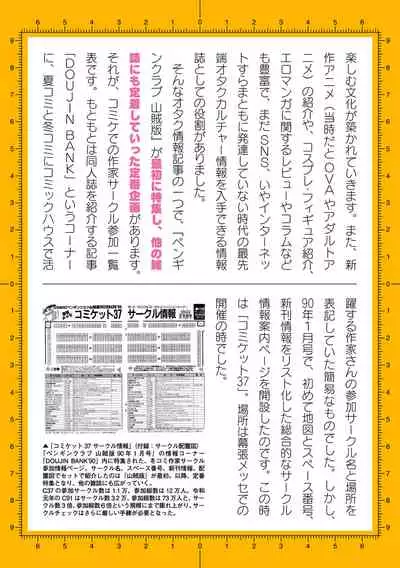 楽しむ文化が築かれていきます。また、新
作アニメ（当時だとＯＶＡやアダルトア
ニメ）の紹介や、コスプレ・フィギュア紹介、
エロマンガに関するレビューやコラムなど
も豊富で、まだＳＮＳ、いやインターネッ
トすらまともに発達していない時代の最先
端オタクカルチャー情報を入手できる情報
誌としての役割がありました。
そんなオタク情報記事の一つで、「ペンギ
ンクラブ 山賊版」が最初に特集し、他の雑
誌にも定着していった定番企画があります。
それが、コミケでの作家サークル参加一覧
表です。もともとは同人誌を紹介する記事
「DOUJIN BANK」というコーナー
に、夏コミと冬コミにコミックハウスで活
躍する作家さんの参加サークル名と場所を
表記していた簡易なものでした。しかし、
90年1月号で、初めて地図とスペース番号、
新刊情報をリスト化した総合的なサークル
情報案内ページを開設したのです。この時
は「コミケット37」。場所は幕張メッセでの
開催の時でした。
コミケット37 サークル情報
▲「コミケット37 サークル情報」（付録：サークル配置図）
「ペンギンクラブ 山賊版 90年1月号」の情報コーナー
「DOUJIN BANK'90」内に特集された、冬コミ作家サークル
参加情報ページ。サークル名、スペース番号、新刊情報、配
置図でセットで紹介したのは「山賊版」が最初。以降、定番
特集となり、他の雑誌にも広がっていく。
C37の参加サークル数は1.1万、参加総数は12万人。令和
元年のC91はサークル数3.2万、参加総数は73万人と、サー
クル数3倍、参加総数6倍という規模にまで膨れ上がり、サー
クルチェックはさらに厳しい手練が必要となった。